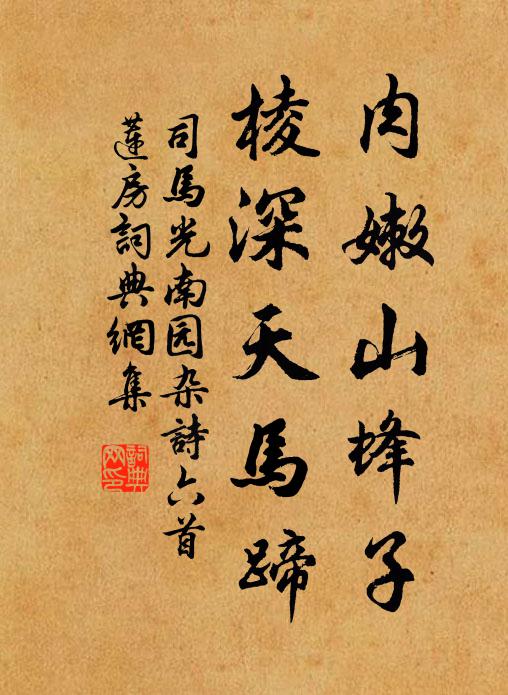 肉嫩山蜂子
棱深天馬蹄
司馬光南园杂詩六首
蓮房詞典網集
詞典网印